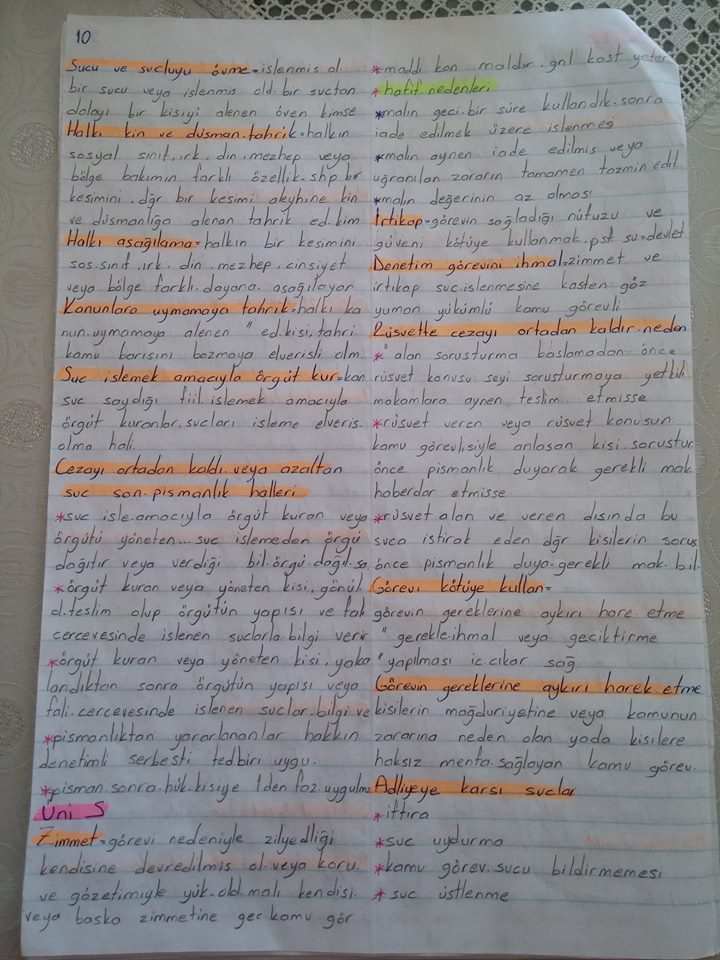 10
Sucu ve sucluyu övme=islenmis ol.
bir sucu veya islenmis old.bir suctan
dolayı bir kisiyi alenen öven kimse
Halkı kin ve düsman.tahrik=halkın
sosyal sınıf,ırk,din,mezhep veya
bölge bakımın farklı özellik.shp bir
kesimini.dğr bir kesimi aleyhine kin
ve düsmanlığa alenan tahrik ed.kim
Halkı asağılama=halkın bir kesimini
sos.sınıf,ırk,din,mezhep,cinsiyet
veya bölge farklı.dayara.asağılayan
Kanunlara uymamaya tahrik=halkı ka
nun.uymamaya alenen " ed.kisi,tahri
kamu barısını bozmaya elverisli olm.
Suc islemek amacıyla örgüt kur=kan
suc saydığı fiil.islemek amacıyla
örgüt kuranlar,sucları isleme elveris.
olma hali.
Cezayı ortadan kaldı.veya azaltan
suc son.pismanlık halleri
*suc isle.amacıyla örgüt kuran veya
örgütü yöneten...suc islemeden örgü
dağıtır veya verdiği bil.örgü.dağıl.sa
*örgüt kuran veya yöneten kisi,gönül
d.teslim olup örgütün yapısı ve fal
cercevesinde islenen suclarla.bilgi verir
*örgüt kuran veya yöneten kisi,yaka
landıktan sonra örgütün yapısı veya
fali.cercevesinde islenen suclar.bilgi ve
*pismanlıktan yararlananlar hakkın
denetimli serbesti tedbiri uygu.
*pisman.sonra.hük.kisiye 1den faz.uygulm
Üni 5
Zimmet=görevi nedeniyle zilyedliği
kendisine devredilmis ol.veya koru.
ve gözetimiyle yük.old.malı kendisi.
veya baska zimmetine gec kamu gör
*maddi kon maldır.gnl kast yeter
*hafif nedenleri
*malın geci.bir süre kullandık.sonra
iade edilmek üzere islenmes
*malın aynen iade edilmis veya
uğranılan zararın tamamen tazmin edil
*malın değerinin az olması
İrtikap=görevin sağladığı nüfuzu ve
güveni kötüye kullanmak.psf su=devlet
Denetim görevini ihmal=zimmet ve
irtikap suc.islenmesine kasten göz
yuman yükümlü kamu görevli
Rüsvette cezayı ortadan kaldır.neden
*" alan sorusturma baslamadan önce
rüsvet konusu seyi sorusturmaya yetkili
makamlara aynen teslim etmisse
*rüsvet veren veya rüsvet konusun
kamu görevlisiyle anlasan kisi.sorustur
önce pismanlık duyarak gerekli mak
haberdar etmisse
*rüsvet alan ve veren dısında bu
suca istirak eden dğr kisilerin sorus
önce pismanlık duya.gerekli mak.bil.
Görevi kötüye kullan=
görevin gereklerine aykırı hare etme
" gerekle.ihmal veya geciktirme
" yapılması ic cıkar sağ
Görevin gereklerine aykırı harek.etme
kisilerin mağduriyetine veya kamunun
zararına neden olan yada kisilere
haksız menfa.sağlayan kamu görev.
Adliyeye karsı suclar
*iftira
*suc uydurma
*kamu görev.sucu bildirmemesi
*suc üstlenme